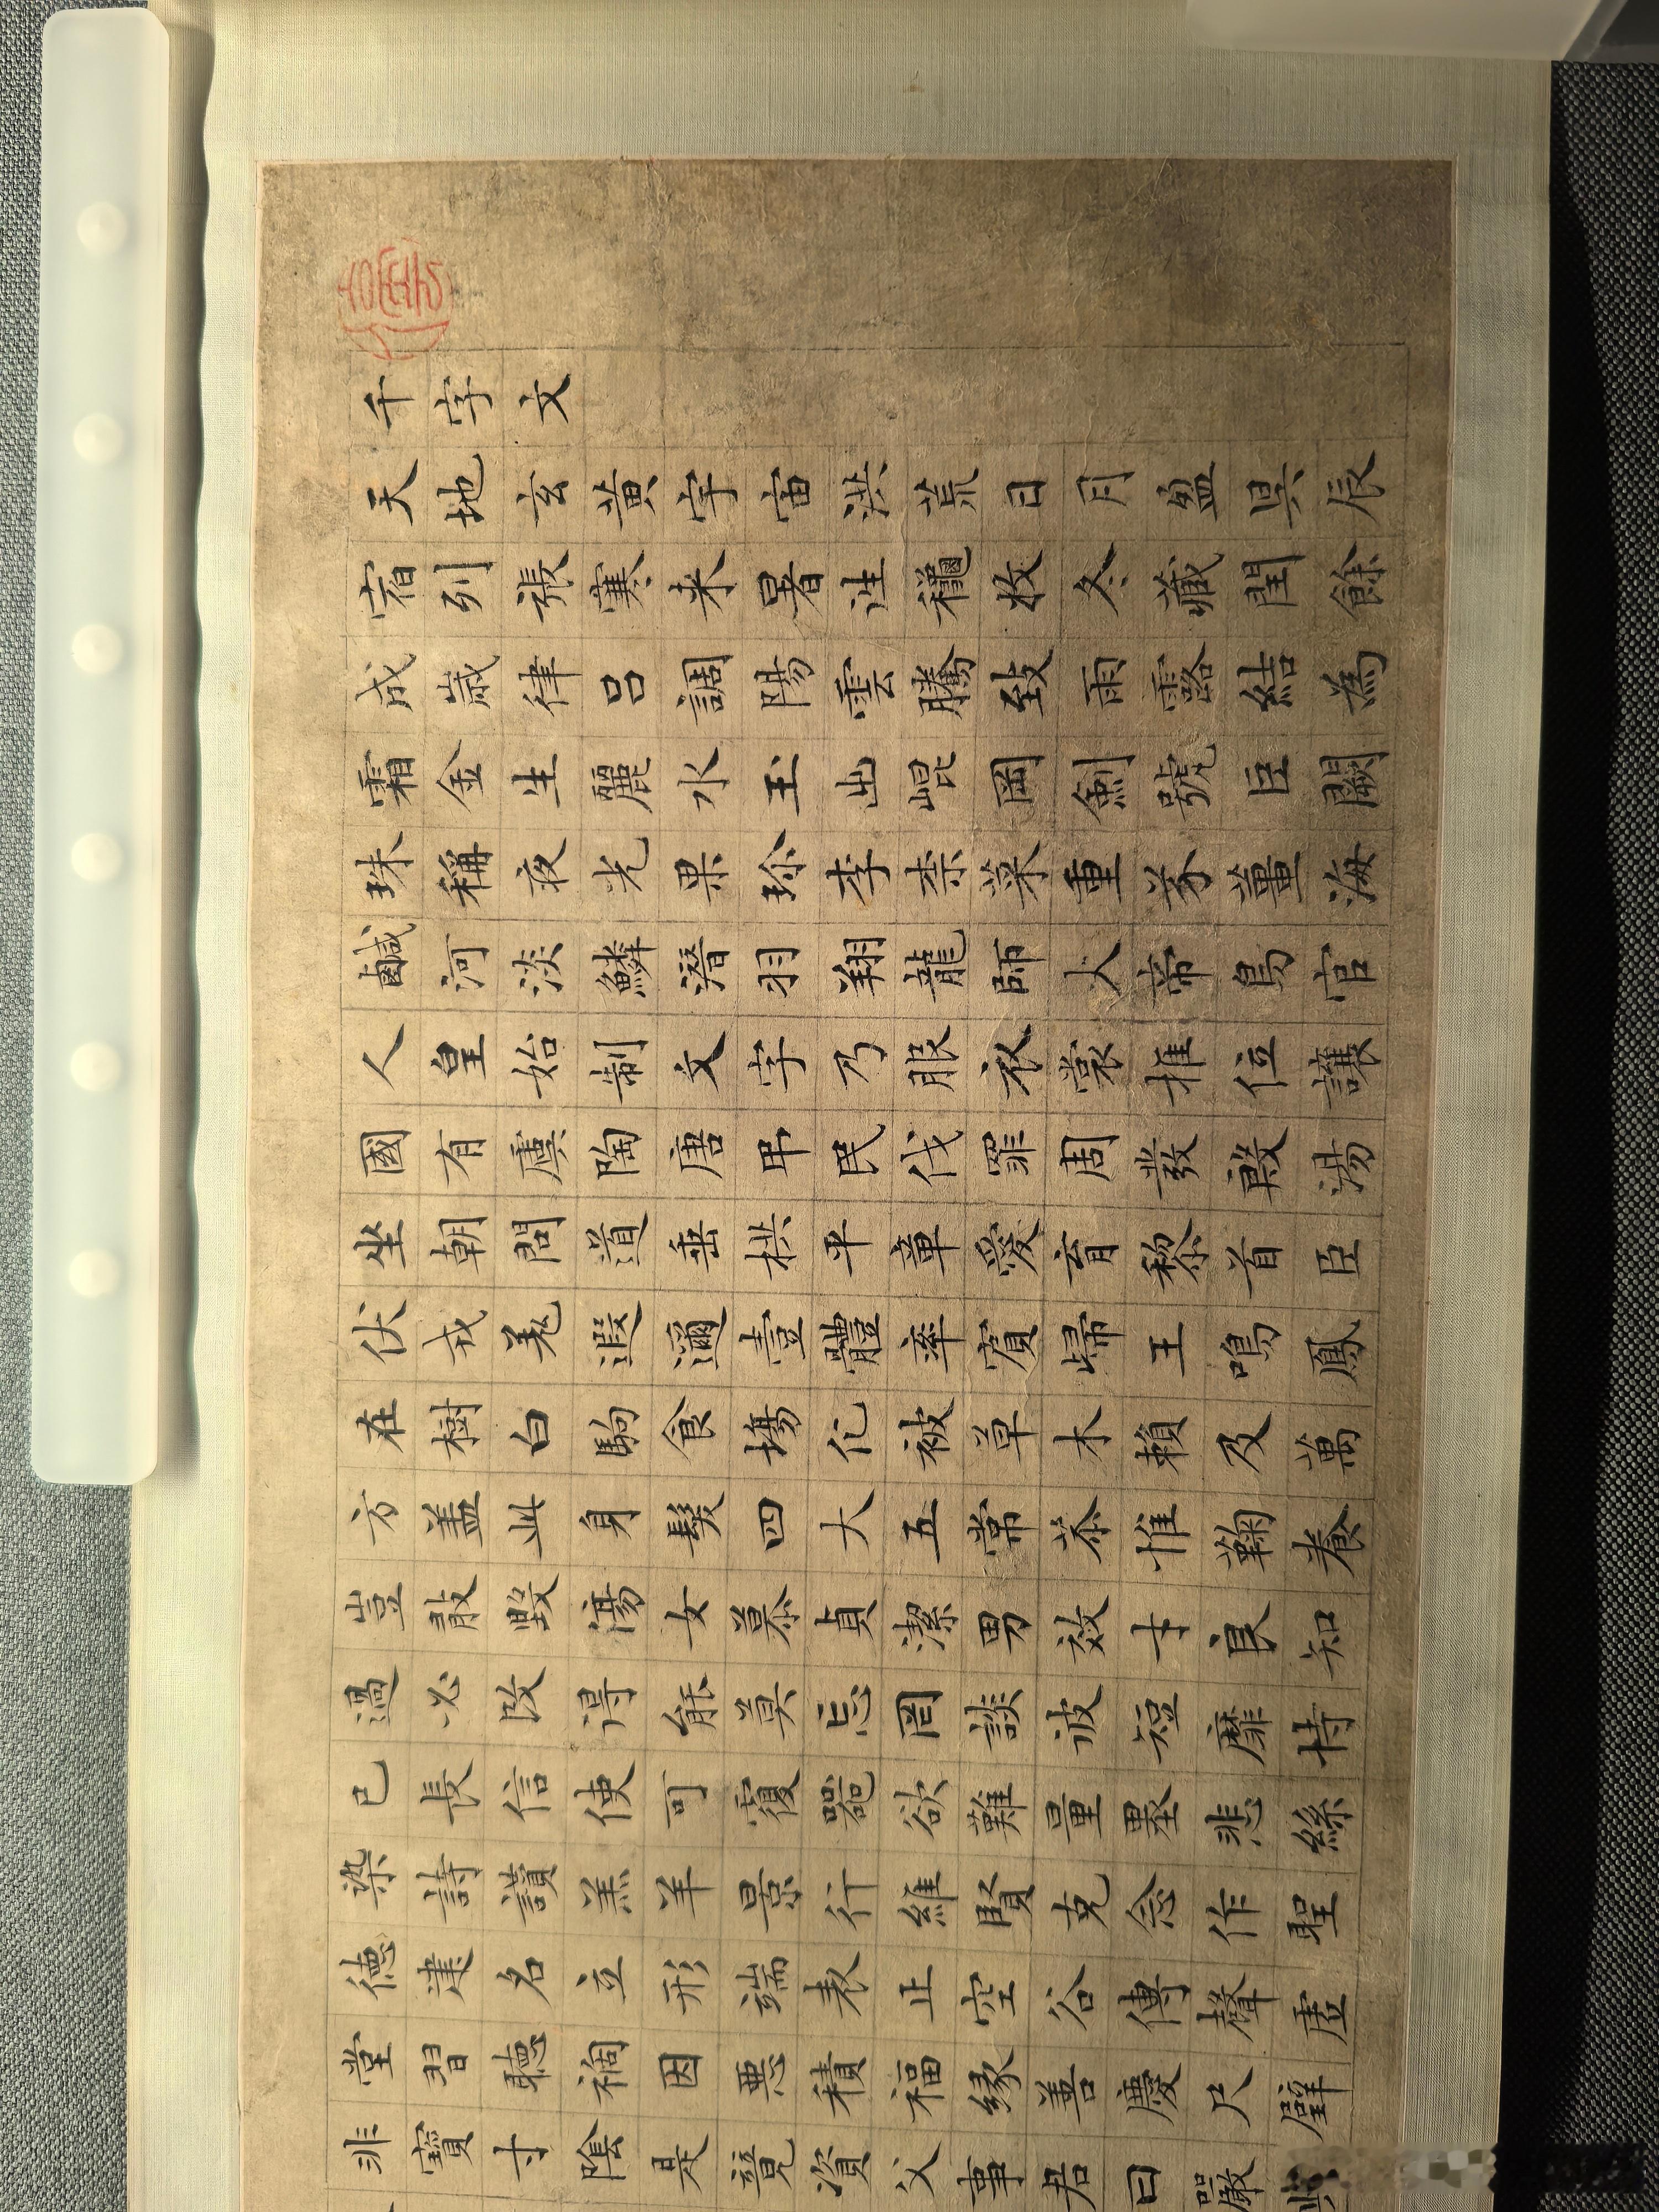 千字文
天地玄黃宇宙洪荒日月盈昃辰
宿列張寒来暑往穐收冬藏閏餘
成歲律呂調陽雲騰致雨露結為
霜金生麗水玉出崐岡劍號臣闕
珠稱夜光果珍李柰菜重芥薑海
鹹河淡鱗潛羽翔龍師火帝鳥官
人皇始制文字乃服衣裳推位讓
國有虞陶唐弔民伐罪周發殷湯
坐朝問道垂拱平章愛育黎首臣
伏戎羌遐邇壹體率賓歸王鳴鳳
在樹白駒食場化被草木賴及萬
方盖此身髮四大五常恭惟鞠養
豈敢毀傷女慕貞潔男效才良知
過必改得能莫忘罔談彼短靡恃
己長信使可覆器欲難量墨悲絲
染詩讚羔羊景行維賢克念作聖
德建名立形端表止空谷傳聲虛
堂習聽禍因惡積福緣善慶尺璧
非寶寸陰是競資父事君曰嚴與